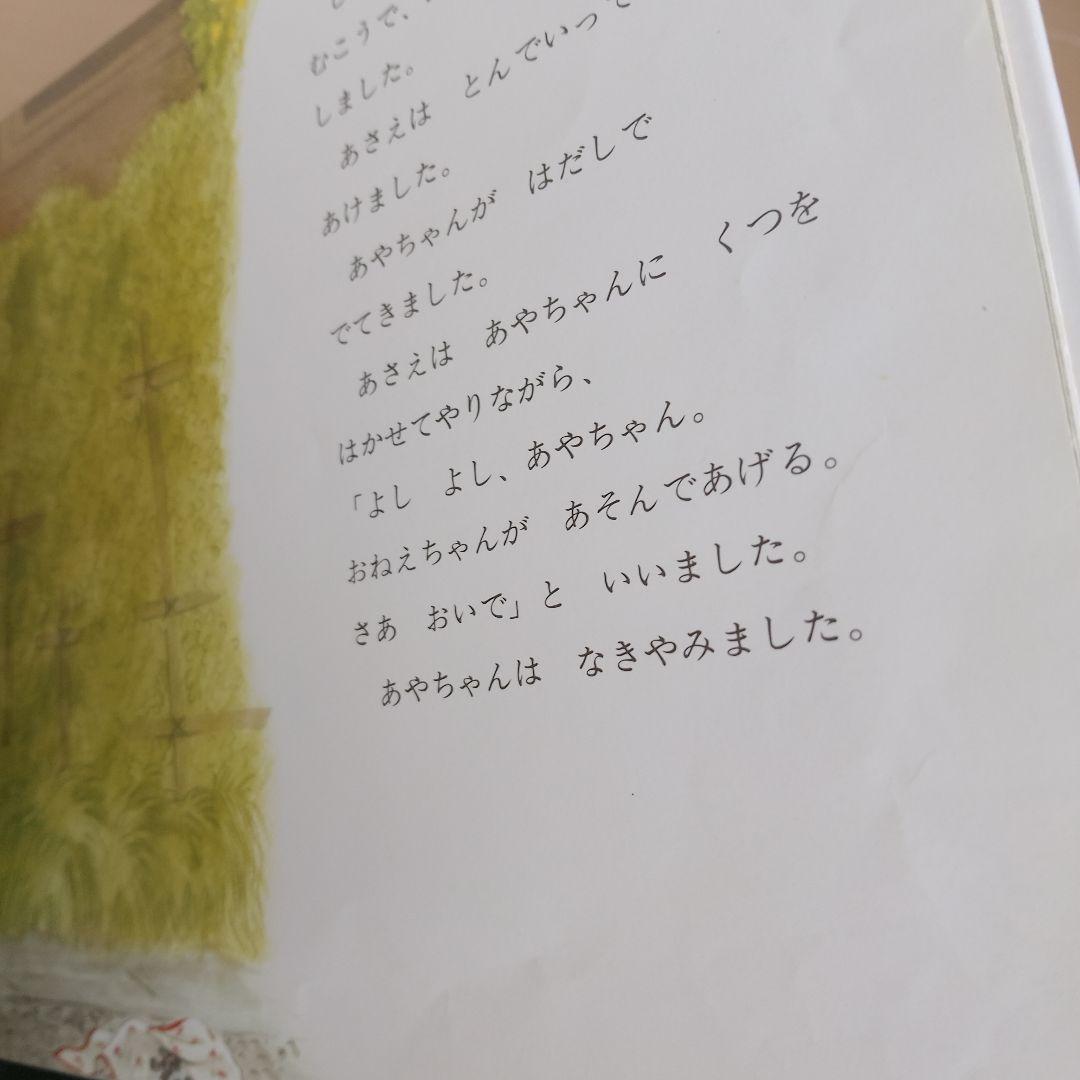 むこうで、
しました。
あさえは　とんでいって
あけました。
あやちゃんが　はだしで
でてきました。
あさえは　あやちゃんに　くつを
はかせてやりながら、
「よし　よし、あやちゃん。
おねえちゃんが　あそんであげる。
さあ　おいで」と　いいました。
あやちゃんは　なきやみました。